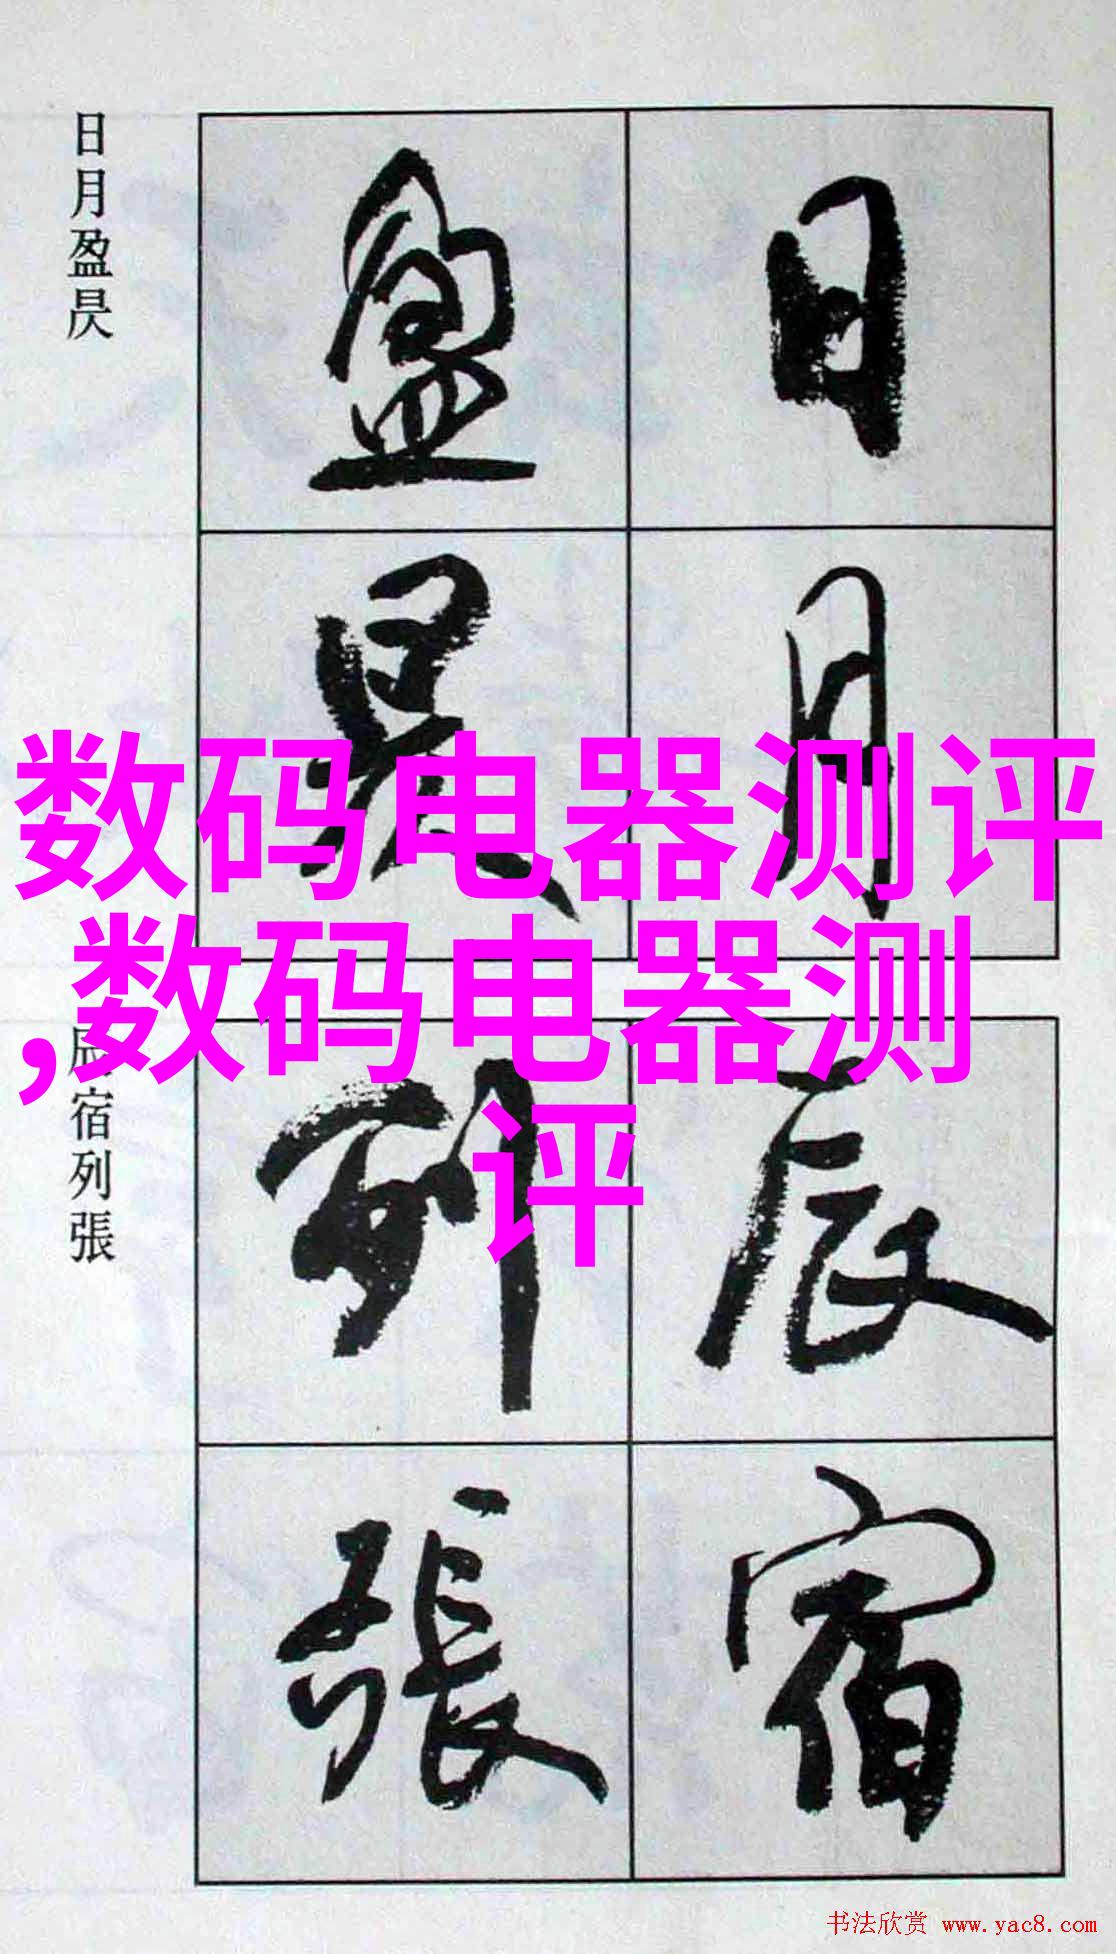 日月盈昃
日月
盈昃
辰宿列張
辰宿
列張
数码电器测评
,数码电器测
评
书法欣赏 www.yac8.com